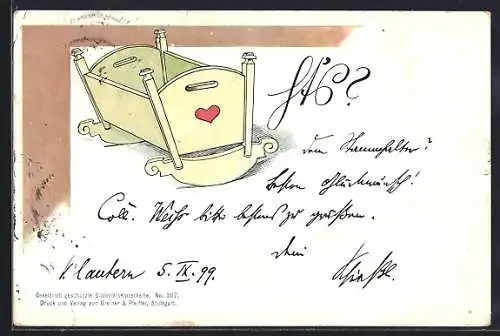 dem Stammhalter?
besten Glückwunsch!
Coll. Weiss bitte bestens zu grüßen.
Dein
K'lautern 5. IX. 99.
Gesetzlich geschützte Bilderrätselpostkarte. No. 387.
Druck und Verlag von Greiner & Pfeiffer, Stuttgart.